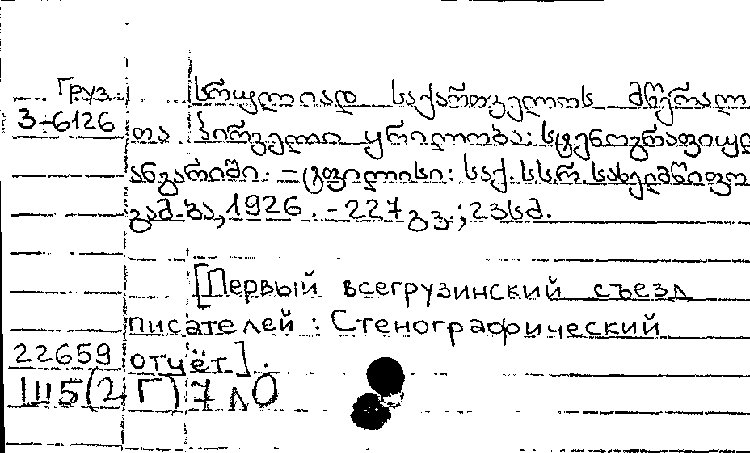 Груз. სრულიად საქართველოს მწერალ
З-6126 თა პირველი ყრილობა: სტენოგრაფიულ
ანგარიში. – ტფილისი: საქ.სსრ. სახელმწიფო
გამ-ბა, 1926. - 227 გვ.; 23სმ.
[Первый всегрузинский съезд
писателей : Стенографический
22659 отчёт].
Ш5(2Г)7 л0